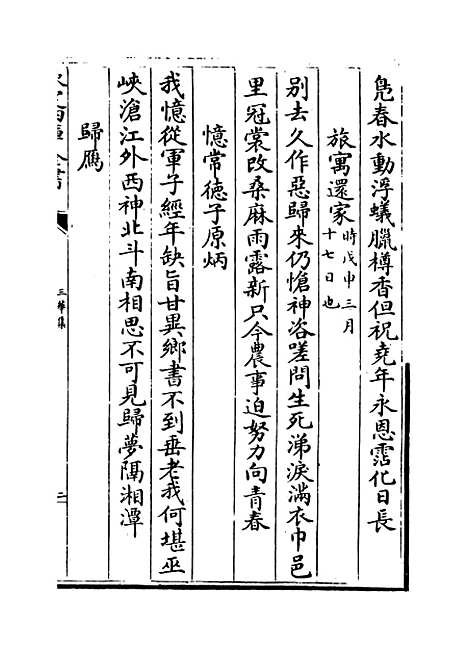 鳧春水動浮蟻臘樽香但祝堯年永恩霑化日長
旅寓還家時戊申三月
十七日也
別去久作惡歸來仍愴神咨嗟問生死涕淚滿衣巾邑
里冠裳改桑麻雨露新只今農事迫努力向青春
憶常徳子原炳
我憶從軍子經年缺旨甘異鄉書不到垂老我何堪巫
峽滄江外西神北斗南相思不可見歸夢隔湘潭
歸鴈
三華集
二